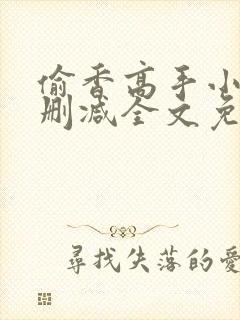 偷香高手小
删减全文免
尋找失落的愛